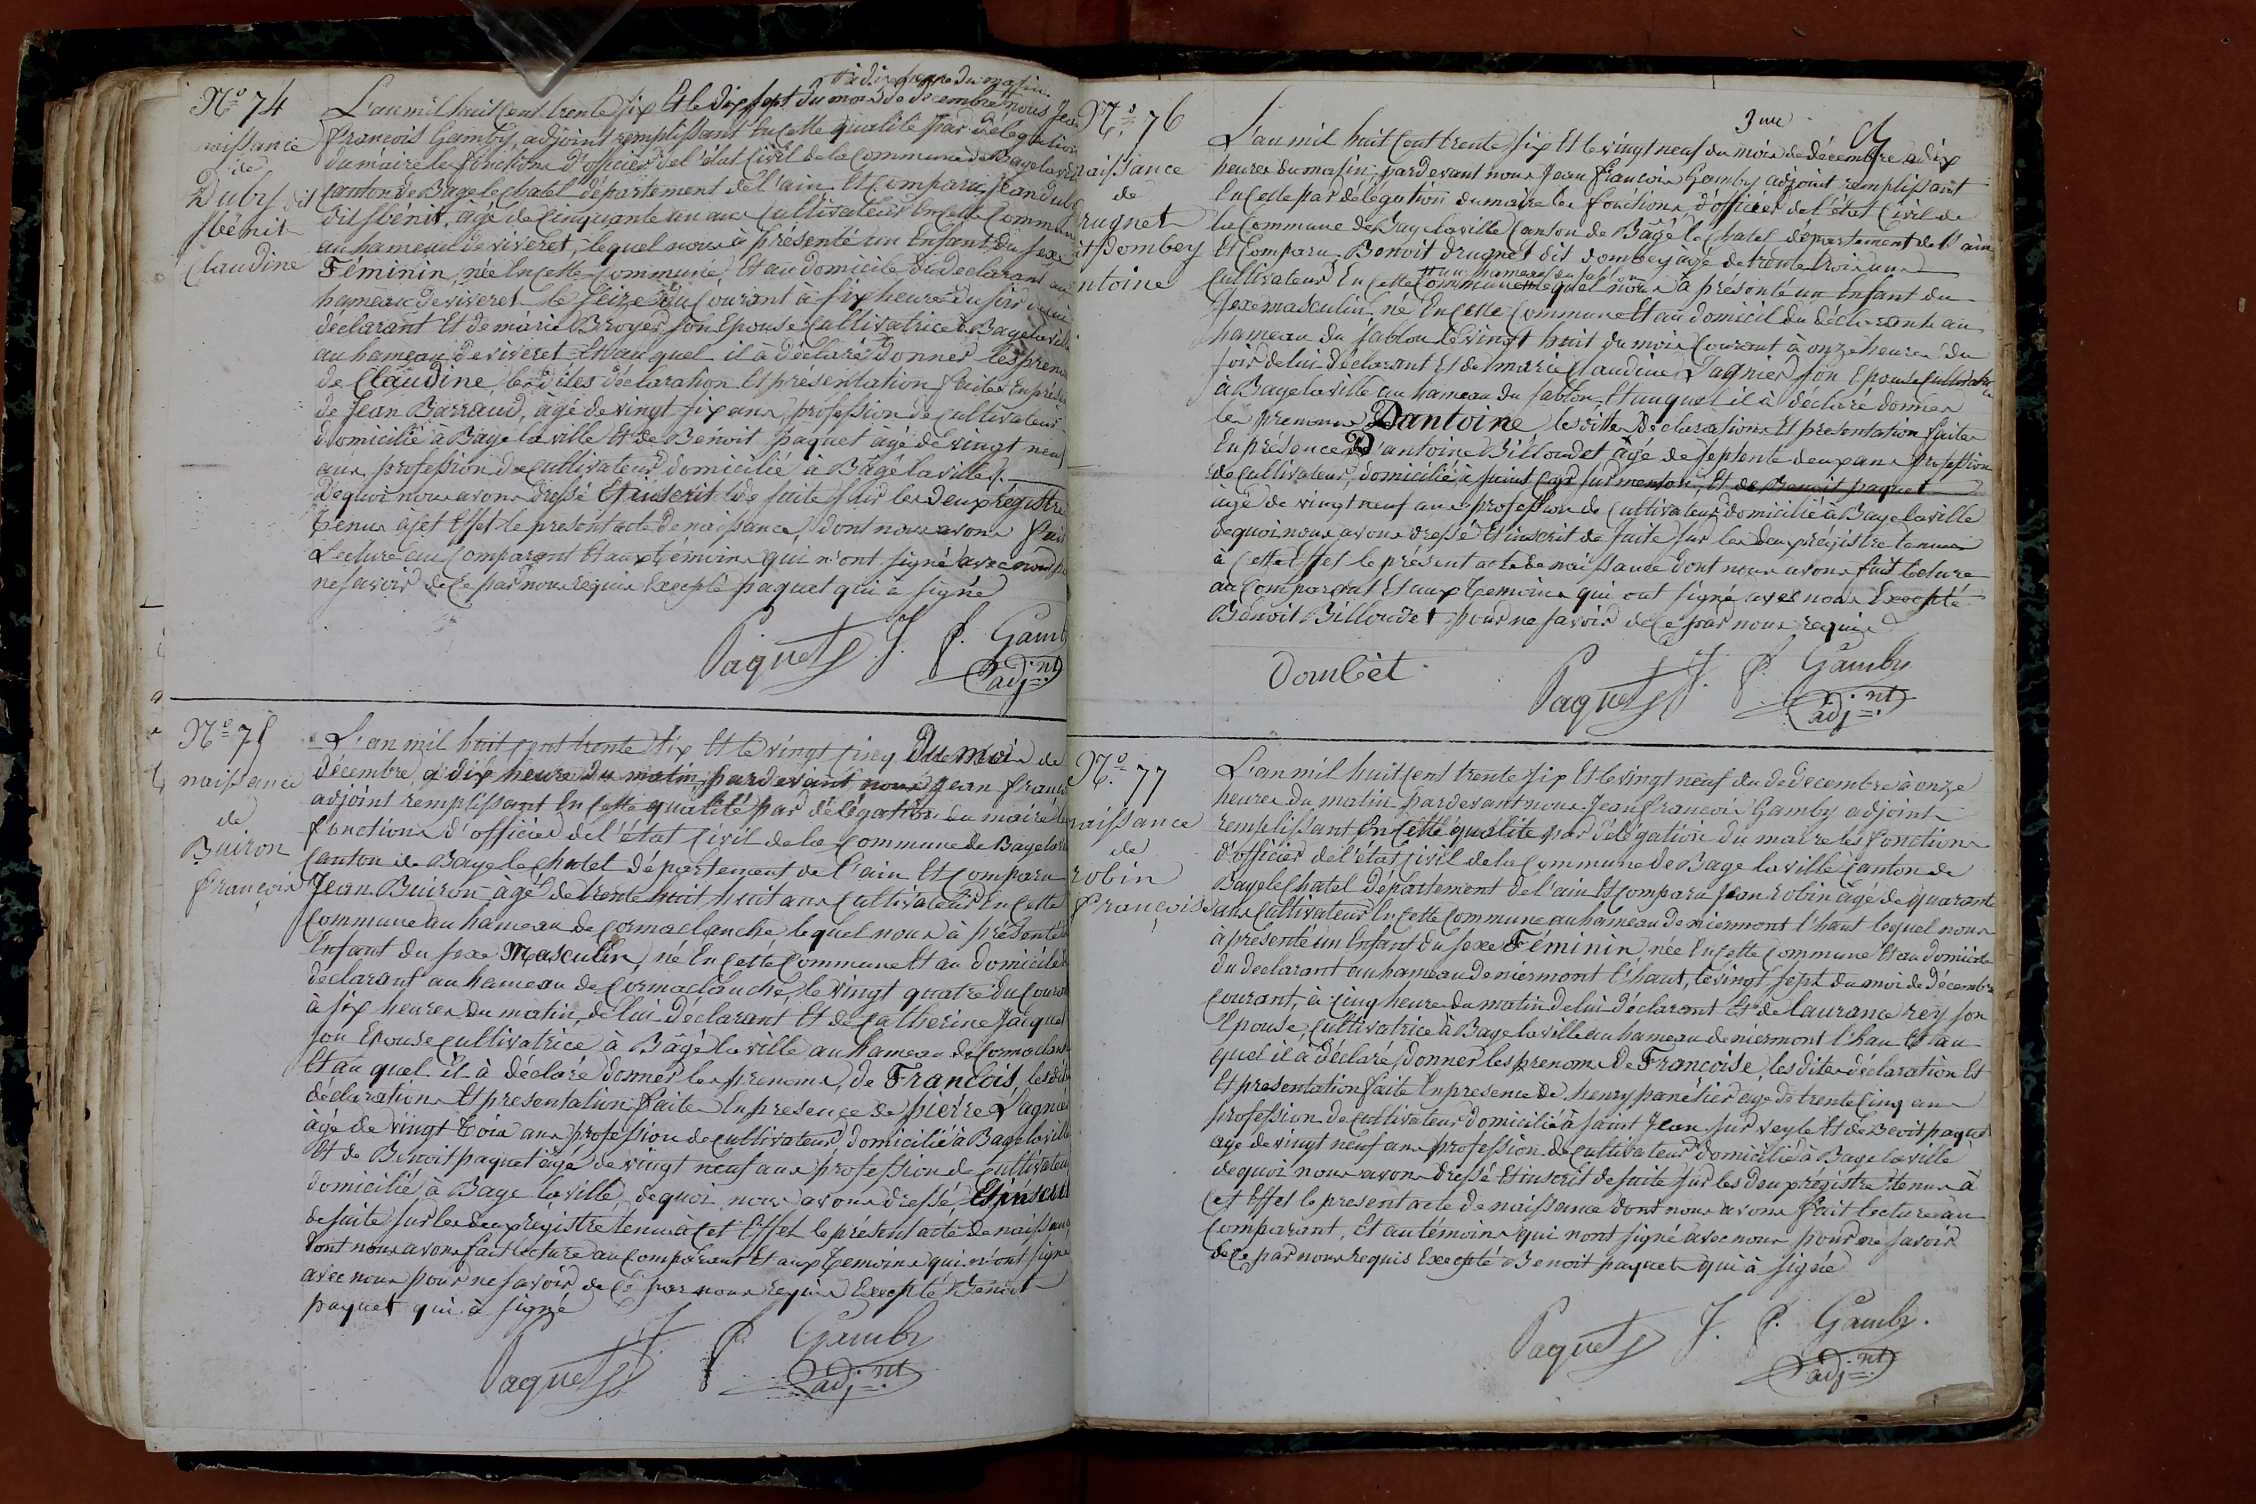 N° 74
naissance
de
Duby dit
Sbénit
Claudine
à dix heures du matin
L'an mil huit cent trente six Et le dix sept du mois de décembre nous Jean
françois Gamby, adjoint remplissant En cette qualité par délégation
du maire les fonctions d'officier de l'état Civil de la Commune de Bagé la ville
Canton de Bagé le Chatel département de l'ain Et Comparu Jean Duby
dit Sbénit, âgé de Cinquante un ans Cultivateur En cette Commune
au hameau de viveret, lequel nous à présenté un Enfant du sexe
Féminin, née En cette Commune Et au domicile du déclarant au
hameau de viveret le seize du Courant à six heures du soir de lui
déclarant Et de marie Broyer son Epouse Cultivatrice à Bagé la ville
au hameau de viveret Et au quel il à déclaré donner les prenoms
de Claudine les dites déclaration Et présentation faites En présence
de Jean Barraud, âgé de vingt six ans, profession de Cultivateur
domicilié à Bage la ville Et de Benoit paquet âgé de vingt neuf
ans profession de Cultivateur domicilié à Bâgé la ville.
De quoi nous avons dressé Et inscrit de suite sur les deux régistre
tenus à Cet Effet le présent acte de naissance, dont nous avons fait
Lecture au Comparent Et aux témoins qui n'ont signé avec nous pour
ne savoir de Ce par nous requis Excepté paquet qui à signé
Paquet J. f. Gamby
adj.nt
N° 75
naissance
de
Buiron
françois
L'an mil huit Cent trente six Et le vingt Cinq Du Mois de
décembre à dix heures du matin, pardevant nous Jean françois
adjoint remplissant En Cette qualité par délégation du maire les
fonctions d'officier de l'état Civil de la Commune de Bage la ville
Canton de Bage le Chatel Département de l'ain Et Comparu
Jean Buiron âgé de trente huit huit ans Cultivateur En Cette
Commune au hameau de Cormaclanche lequel nous à présenté
Enfant du sexe Masculin, né En Cette Commune Et au domicile
déclarant au hameau de Cormaclanche, le vingt quatre du Courant
à six heures du matin, de lui déclarant Et de Catherine Jaiquet
son Epouse Cultivatrice à Bâgé la ville au hameau de Cormaclanche
Et au quel il à déclaré donner les prenoms, de François, les dites
déclarations Et présentation faites En présence de pierre Lagnier
âgé de vingt trois ans profession de Cultivateur domicilié à Bage la ville
Et de Benoit paquet âgé de vingt neuf ans profession de Cultivateur
domicilié à Bage la ville, de quoi nous avons dressé, Et inscrit
de suite sur les deux régistre tenus à Cet Effet le présent acte de naissance
dont nous avons fait lecture au Comparent Et aux témoins qui n'ont signé
avec nous pour ne savoir de Ce par nous requis Excepté Benoit
paquet qui à signé
Paquet J. f. Gamby
adj.nt
N° 76
naissance
de
Drugnet
dit Dombey
antoine
L'an mil huit Cent trente six Et le vingt neuf du mois de décembre à dix
heures du matin, pardevant nous Jean françois Gamby adjoint remplissant
En Cette par délégation du maire les fonctions d'officier de l'état Civil de
la Commune de Bage la ville Canton de Bâgé le Chatel département de l'ain
Et Comparu Benoit drugnet dit dombey âgé de trente trois ans
Et au hameau du sablon
Cultivateur En Cette Commune lequel nous à présenté un Enfant du
sexe masculin, né En Cette Commune Et au domicil du déclarante au
hameau du sablon le vingt huit du mois Courant à onze heures du
soir de lui déclarant Et de marie Claudine Lagnier son Epouse Cultivatrice
à Bage la ville au hameau du sablon, Et auquel il à déclaré donner
les prenoms Dantoine les dittes déclarations Et présentation faites
En présence D'antoine Billoudet âgé de septente deux ans profession
de Cultivateur, domicilié à saint Cyr sur menton, Et de Benoit paquet
âgé de vingt neuf ans profession de Cultivateur domicilié à Bage la ville
de quoi nous avons dressé Et inscrit de suite sur les deux régistre tenus
à Cette Effet le présent acte de naissance dont nous avons fait lecture
au Comparent Et aux témoins qui ont signé avec nous Excepté
Benoit Billoudet pour ne savoir de Ce par nous requis
Dombet Paquet J. f. Gamby
adj.nt
N° 77
naissance
de
robin
françoise
L'an mil huit Cent trente six Et le vingt neuf du de décembre à onze
heures du matin pardevant nous Jean françois Gamby adjoint
remplissant En Cette qualité par délégation du maire les fonctions
d'officier de l'état Civil de la Commune de Bage la ville Canton de
Bage le Chatel Département de l'ain Et Comparu Jean robin âgé de quarante
ans Cultivateur En Cette Commune au hameau de niermont l'haut lequel nous
à présenté un Enfant du sexe Féminin, née En Cette Commune Et au domicile
du déclarant au hameau de niermont l'haut, le vingt sept du moi de Décembre
Courant, à Cinq heures du matin de lui déclarant Et de laurance rey son
Epouse Cultivatrice à Bage la ville au hameau de niermont l'hau Et au
quel il à déclaré, donner les prenoms De Francoise, les dites déclaration Et
Et présentation faite En présence de henry panetier âgé de trente Cinq ans
profession de Cultivateur domicilié à saint Jean sur veyle Et de Beoit paquet
âgé de vingt neuf ans profession de Cultivateur domicilié à Bage la ville
de quoi nous avons dressé Et inscrit de suite sur les deux régistre tenus à
Cet Effet le présent acte de naissance dont nous avons fait lecture au
Comparant, Et au témoins qui nont signé avec nous pour ne savoir
de Ce par nous requis Excepté Benoit paquet qui à signé
Paquet J. f. Gamby.
adj.nt